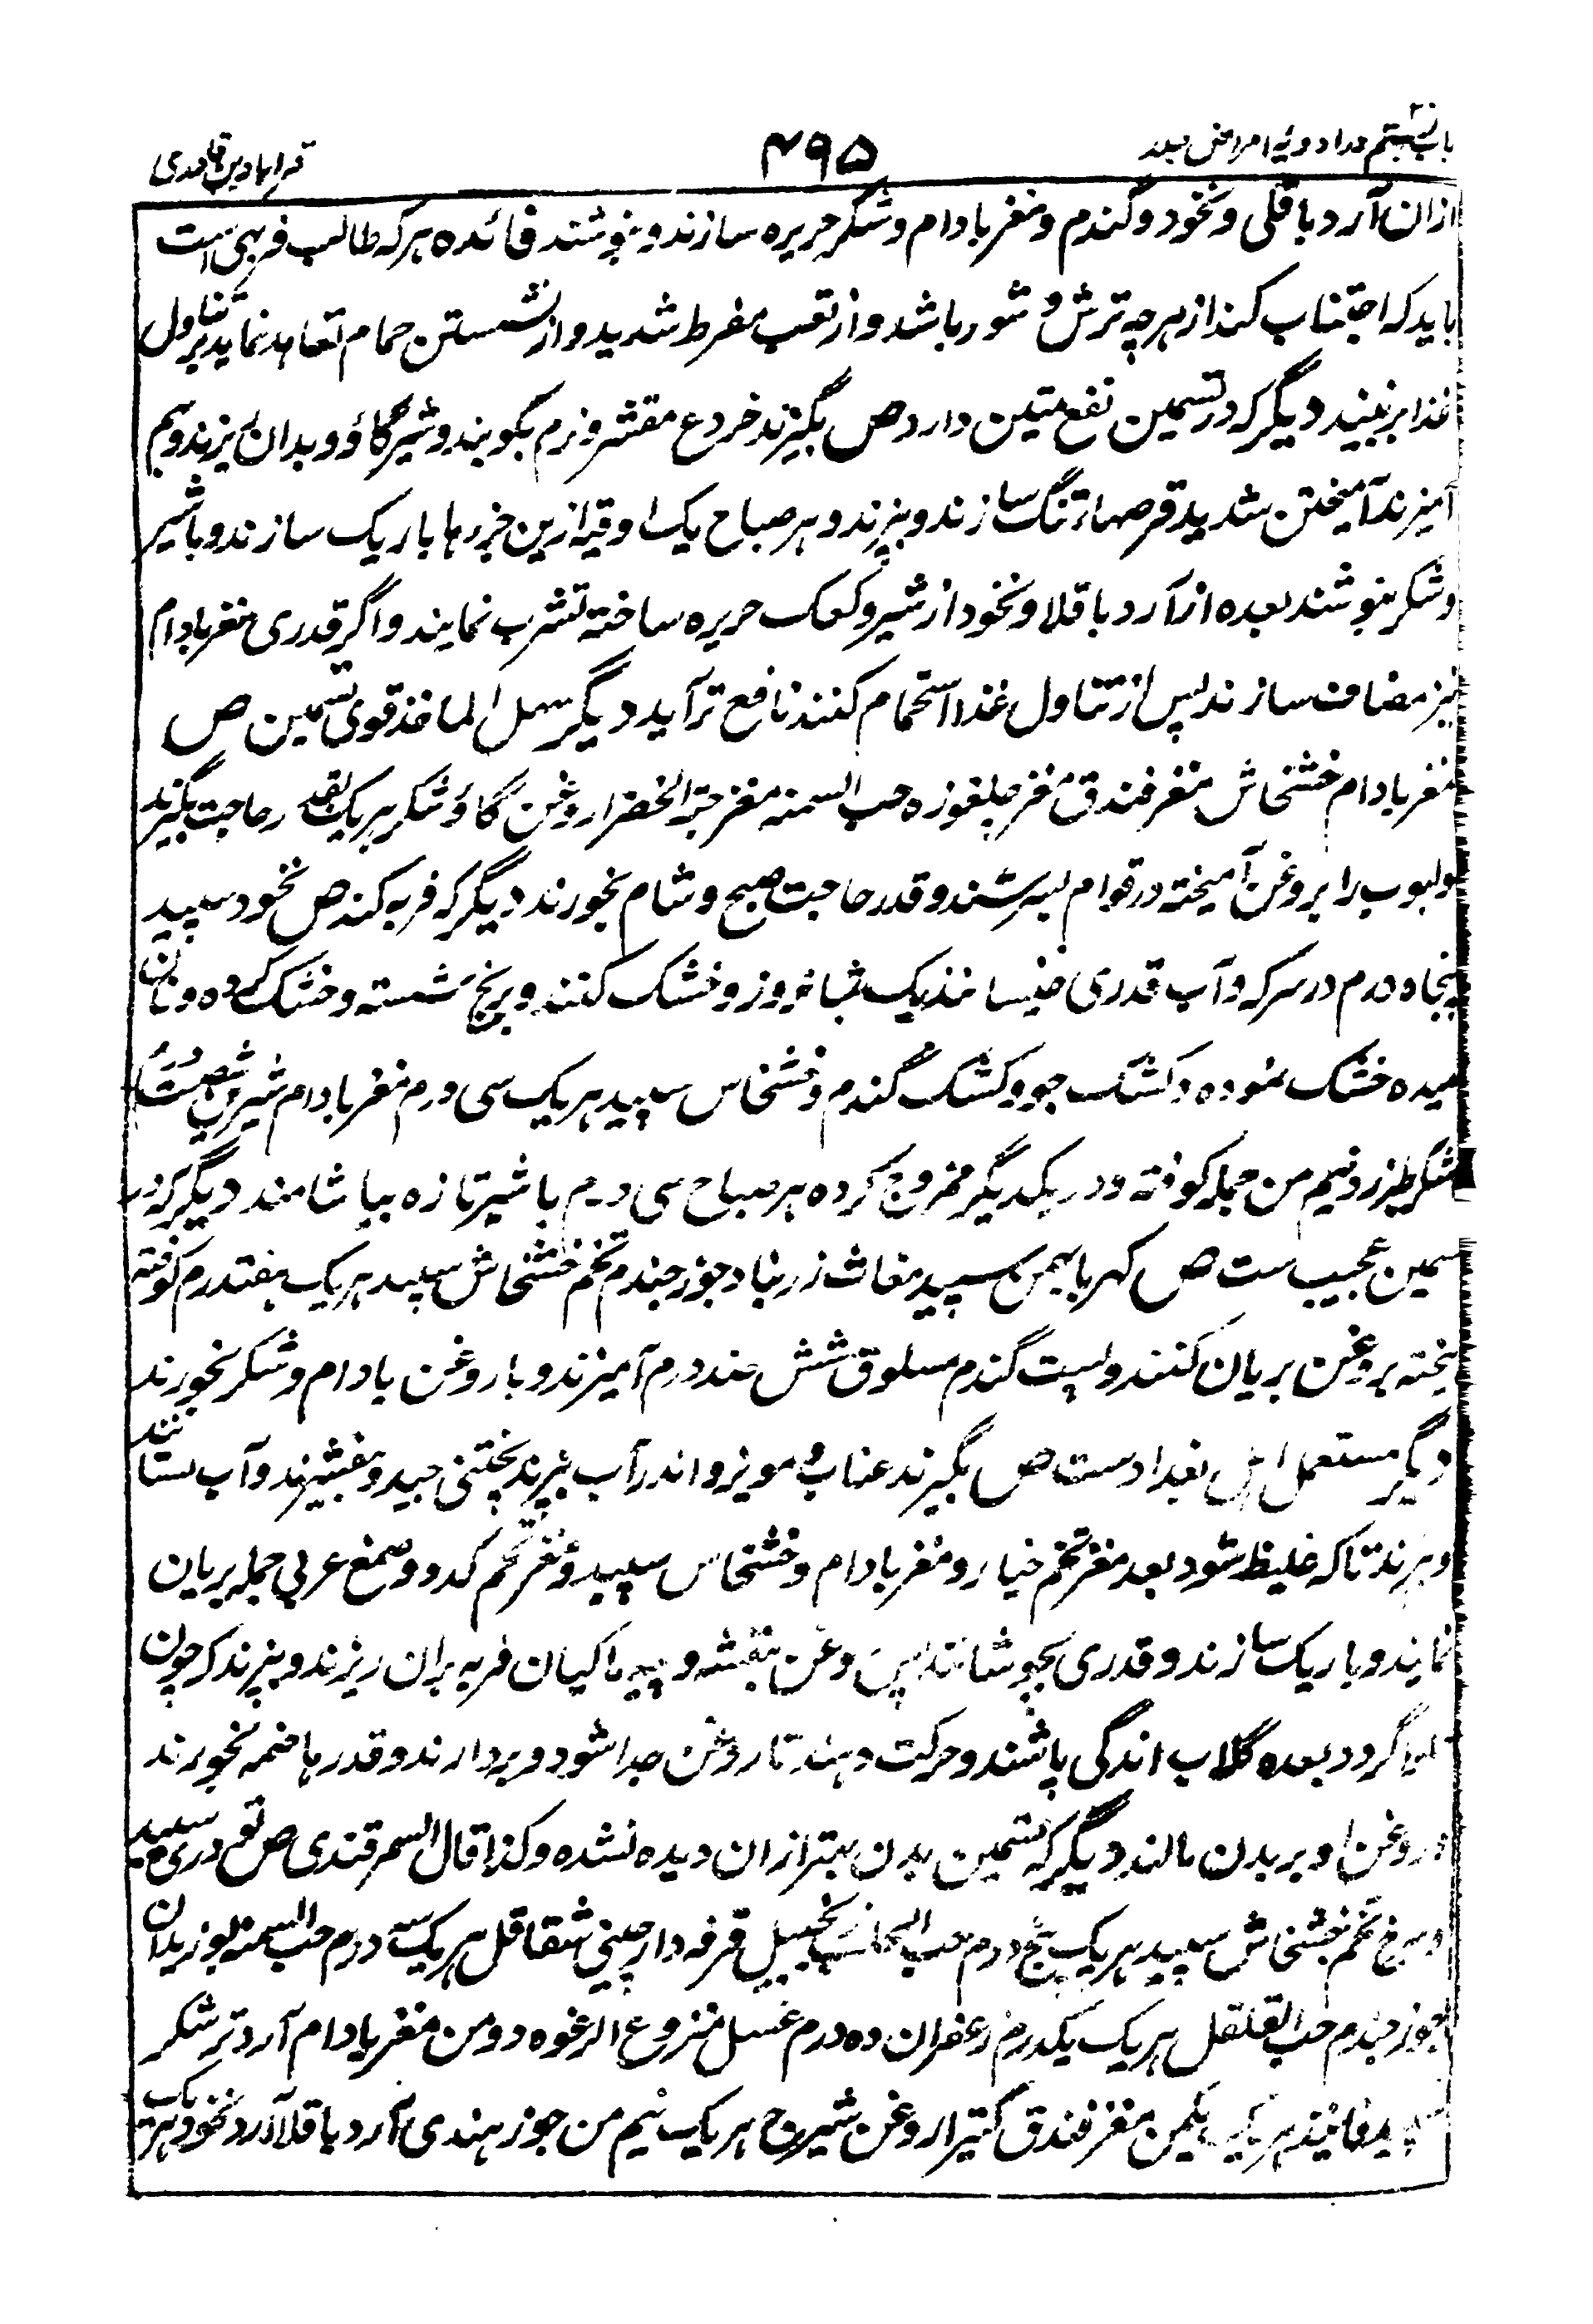 باب بستم در ادویه امراض جلد ۴۹۵ قرابادین قادری
ازان آرد باقلی و نخود و گندم و مغز بادام و شکر حریره سازند و بنوشند فائده هر که طالب فربهی است
باید که اجتناب کند از هر چه ترش و شور باشد و از تعب مفرط شدید و از نشستن حمام تعاهد نماید تناول
غذا بر نبیند دیگر که در تسمین نفع متین دارد ص بگیرند خروع مقشر و نرم بکوبند و شیر گاؤ و بدان ریزند و بهم
آمیزند آمیختن شدید قرصهاء تنگ سازند و بپزند و هر صباح یک اوقیه ازین خبزها باریک سازند و باشیر
و شکر بنوشند بعده از آرد باقلا و نخود از شیر و کعک حریره ساخته تشرب نمایند و اگر قدری مغز بادام
نیز مضاف سازند پس از تناول غذا استحمام کنند نافع تر آید دیگر سهل الماخذ قوی تسمین ص
مغز بادام خشخاش مغز فندق مغز چلغوزه حب السمنه مغز حبة الخضرا روغن گاؤ شکر هر یک بقدر حاجت بگیرند
و لبوب را بروغن آمیخته در قوام بسرشند و قدر حاجت صبح و شام بخورند دیگر که فربه کند ص نخود سپید
پنجاه درم در سرکه و آب قدری خیسانند یک شبانروز و خشک کنند و برنج شسته و خشک کرده و نان
میده خشک نموده و کشک جو و کشک گندم و خشخاس سپید هر یک سی درم مغز بادام شیرین شصت درم
شکر طبرزد نیم من جمله کوفته و در یکدیگر ممزوج کرده هر صباح سی درم با شیر تازه بیاشامند دیگر که در
تسمین عجیب ست ص کهربا بهمن سپید مغاث زرنباد جوز جندم تخم خشخاش سپید هر یک هفتدرم کوفته
بیخته بروغن بریان کنند و پست گندم مسلوق شش صد درم آمیزند و با روغن بادام و شکر بخورند
دیگر مستعمل اهل بغداد ست ص بگیرند عناب و مویز و اندر آب بپزند پختنی جید و بفشیرند و آب بستانند
و بپزند تا که غلیظ شود بعد مغز تخم خیار و مغز بادام و خشخاس سپید و مغز تخم کدو و صمغ عربی جمله بریان
نمایند و باریک سازند و قدری بجوشانند پس روغن بنفشه و پیه ماکیان فربه بران ریزند و بپزند که چون
گردد بعده گلاب اندکی پاشند و حرکت دهند تا روغن جدا شود و بردارند و قدر هاضمه بخورند
و روغن او بر بدن مالند دیگر که تسمین بدن بهتر ازان دیده نشده و کذا قال السمرقندی ص تودری سپید
و سرخ تخم خشخاش سپید هر یک پنج درم حب زنجبیل قرفه دارچینی شقاقل هر یک سه درم حب السمنه بوزیدان
جوز جندم حب القلقل هر یک یکدرم زعفران ده درم عسل منزوع الرغوه دو من مغز بادام آرد تر شکر
فانیذ هر یک یکمن مغز فندق کتیرا روغن شیرج هر یک نیم من جوز هندی آرد باقلا آرد نخود هر یک